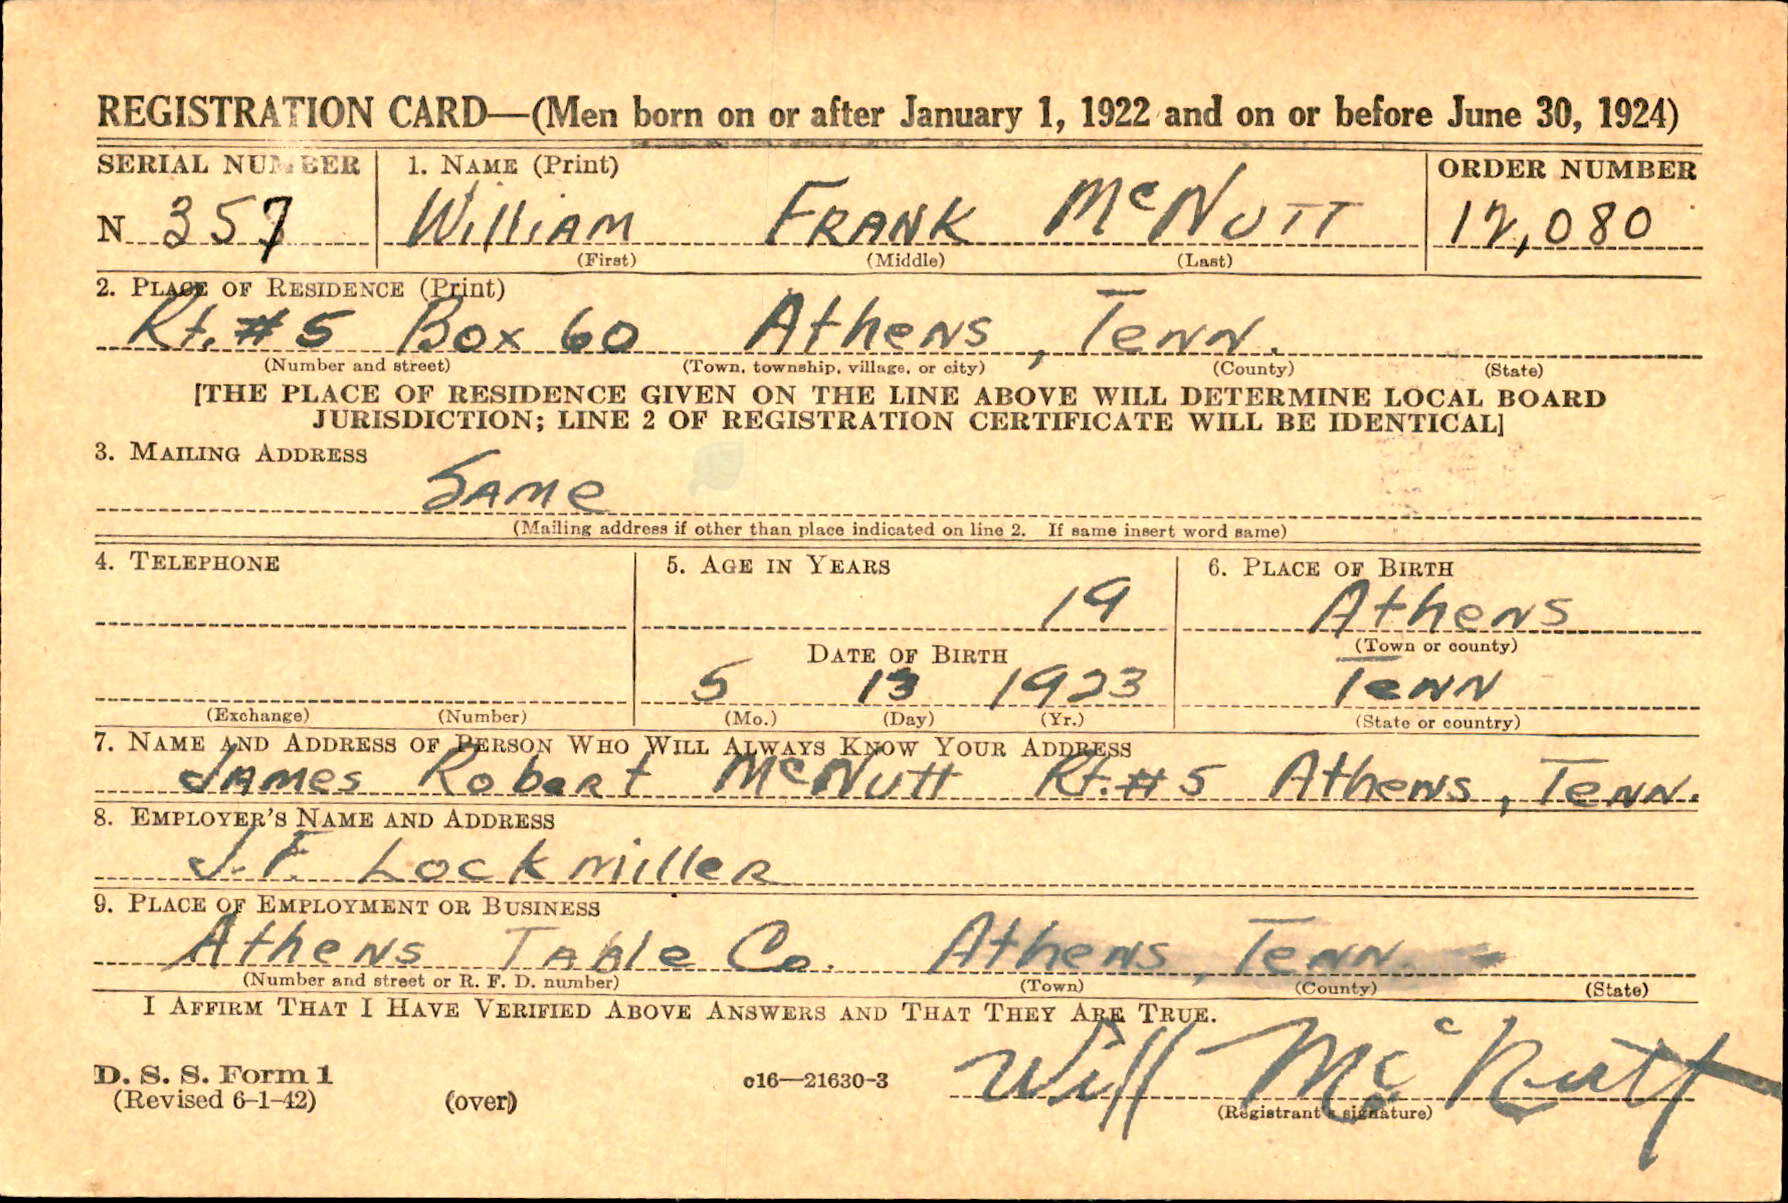 REGISTRATION CARD—(Men born on or after January 1, 1922 and on or before June 30, 1924)
SERIAL NUMBER 1. NAME (Print) ORDER NUMBER
N 357 William FRANK McNUTT 12,080
(First) (Middle) (Last)
2. PLACE OF RESIDENCE (Print)
Rt. #5 Box 60 Athens, Tenn.
(Number and street) (Town, township, village, or city) (County) (State)
[THE PLACE OF RESIDENCE GIVEN ON THE LINE ABOVE WILL DETERMINE LOCAL BOARD
JURISDICTION; LINE 2 OF REGISTRATION CERTIFICATE WILL BE IDENTICAL]
3. MAILING ADDRESS
Same
(Mailing address if other than place indicated on line 2. If same insert word same)
4. TELEPHONE 5. AGE IN YEARS 6. PLACE OF BIRTH
19 Athens
(Town or county)
DATE OF BIRTH
5 13 1923 Tenn
(Exchange) (Number) (Mo.) (Day) (Yr.) (State or country)
7. NAME AND ADDRESS OF PERSON WHO WILL ALWAYS KNOW YOUR ADDRESS
James Robert McNutt Rt. #5 Athens, Tenn.
8. EMPLOYER'S NAME AND ADDRESS
J.F. Lockmiller
9. PLACE OF EMPLOYMENT OR BUSINESS
Athens Table Co. Athens, Tenn.
(Number and street or R. F. D. number) (Town) (County) (State)
I AFFIRM THAT I HAVE VERIFIED ABOVE ANSWERS AND THAT THEY ARE TRUE.
D. S. S. Form 1
(Revised 6-1-42) (over) c16—21630-3 Will McNutt
(Registrant's signature)